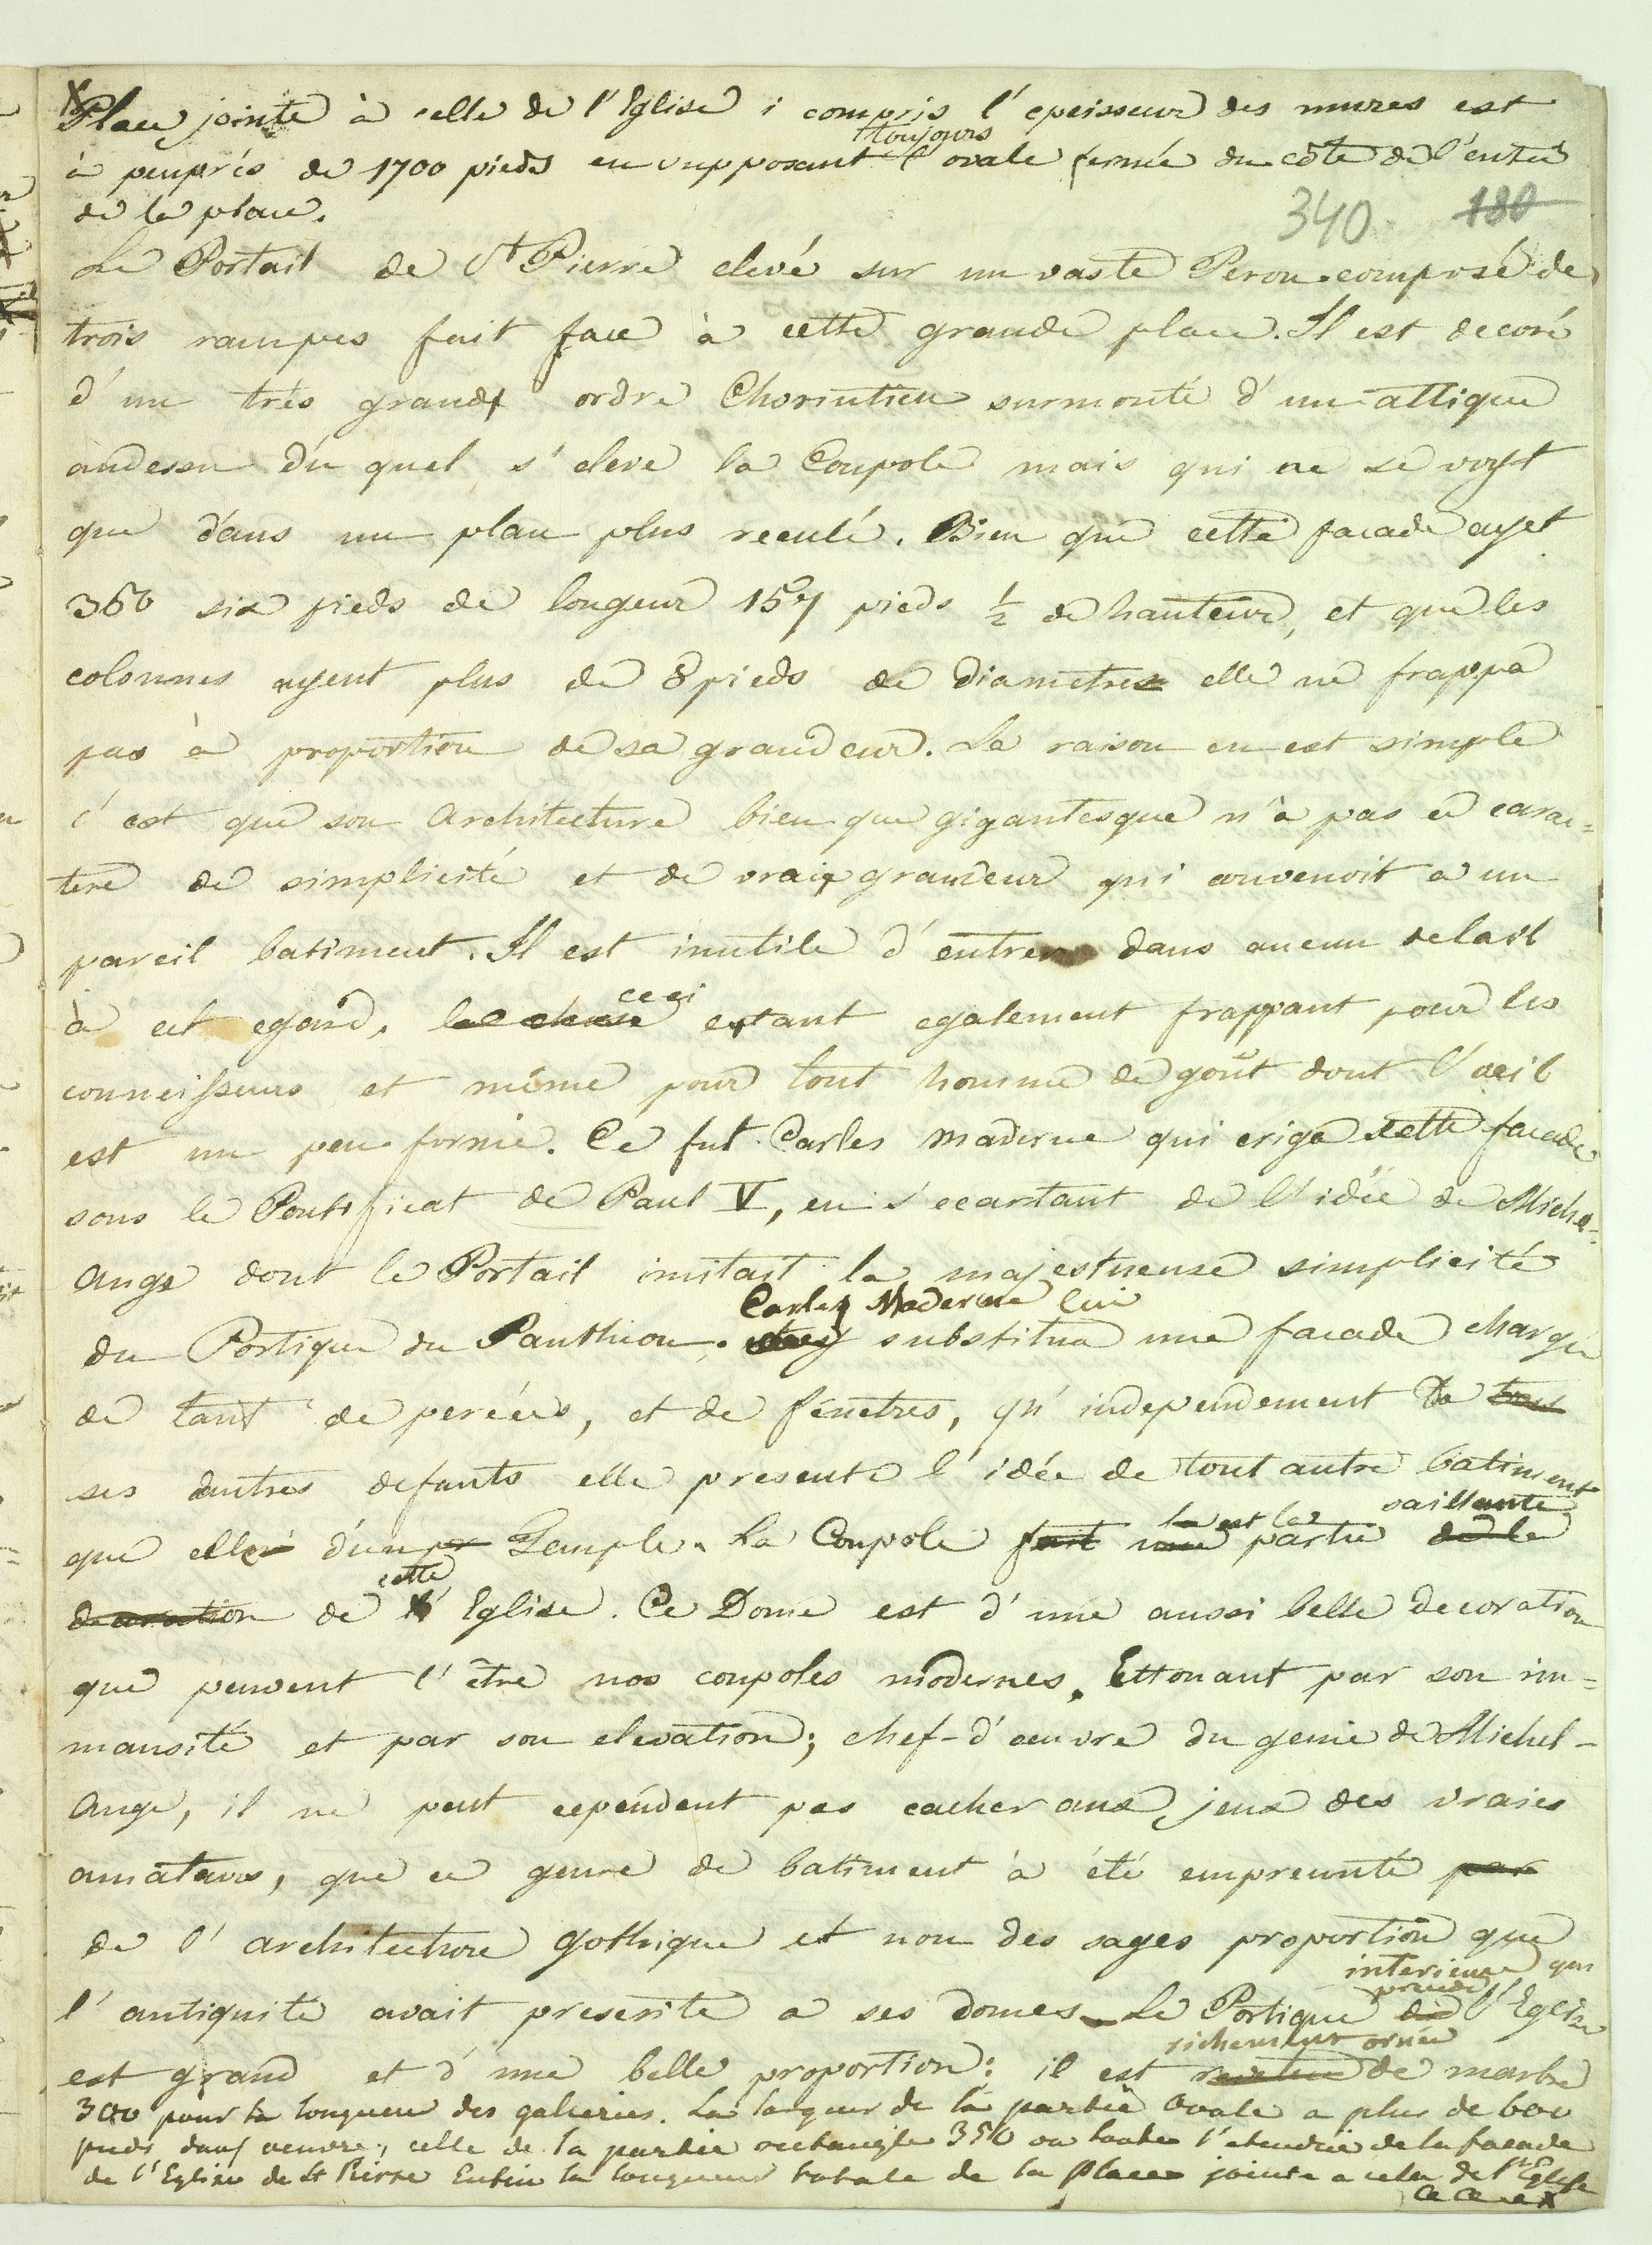 Place jointe à celle de l'Eglise i compris l'epeisseur des mures est
toujours
à peuprés de 1700 pieds en supposant l'ovale fermée du coté de l'entré
de la place.
340 180
Le Portail de St Pierre elevé sur un vaste Peron composé de
trois rampes fait face à cette grande place. Il est decoré
d'un trés grand ordre Chorintien surmonté d'un attique
audessu du quel s'eleve la Coupole mais qui ne se voyt
que dans un plan plus reculé. Bien que cette facade ayet
360 six pieds de longeur 157 pieds ½ de hauteur, et que les
colonnes ayent plus de 8 pieds de diametre elle ne frappa
pas à proportion de sa grandeur. La raison en est simple
c'est que son Architecture bien que gigantesque n'à pas ce carac=
tere de simplicité et de vrai grandeur qui convenoit a un
pareil batiment. Il est inutile d'entrer dans aucun detail
ceci
à cet egard, la chose estant egalement frappant pour les
conneisseurs et même pour tout homme de goût dont l'oeil
est un peu formé. Ce fut Carles Maderne qui erige cette facade
sous le Pontificat de Paul V, en s'ecartant de l'idée de Michel=
Ange dont le Portail imitait la majestueuse simplicité
Carles Maderne lui
du Portique du Panthéon. substitua une facade chargée
de tant de percées, et de fénetres, qu'independement de tous
ses autres defauts elle presente l'idée de tout autre batiment
en est la saillante
que celle d'un Temple. La Coupole fait une partie de la
cette
decoration de l'Eglise. Ce Dome est d'une aussi belle decoration
que peuvent l'être nos coupoles modernes. Ettonant par son im=
mansité et par son elevation; chef-d'oeuvre du genie de Michel-
Ange, il ne peut cependent pas cacher aux jeux des vraies
amateurs, que ce genre de batiment à été empreunté par
de l'architecture gothique et non des sages proportion que
interieure qui
precede
l'antiquité avait prescrite a ses domes. Le Portique de l'Eglise
richement ornée
est grand et d'une belle proportion: il est de marbre
300 pour la longueur des galieries. La largeur de la partie Ovale a plus de 600
pieds dans oeuvre, celle de la partie rectangle 350 ou toute l'etendue de la facade
de l'Eglise de St Pierre Enfin la longueur totale de la Place jointe a celle de l'Eglise